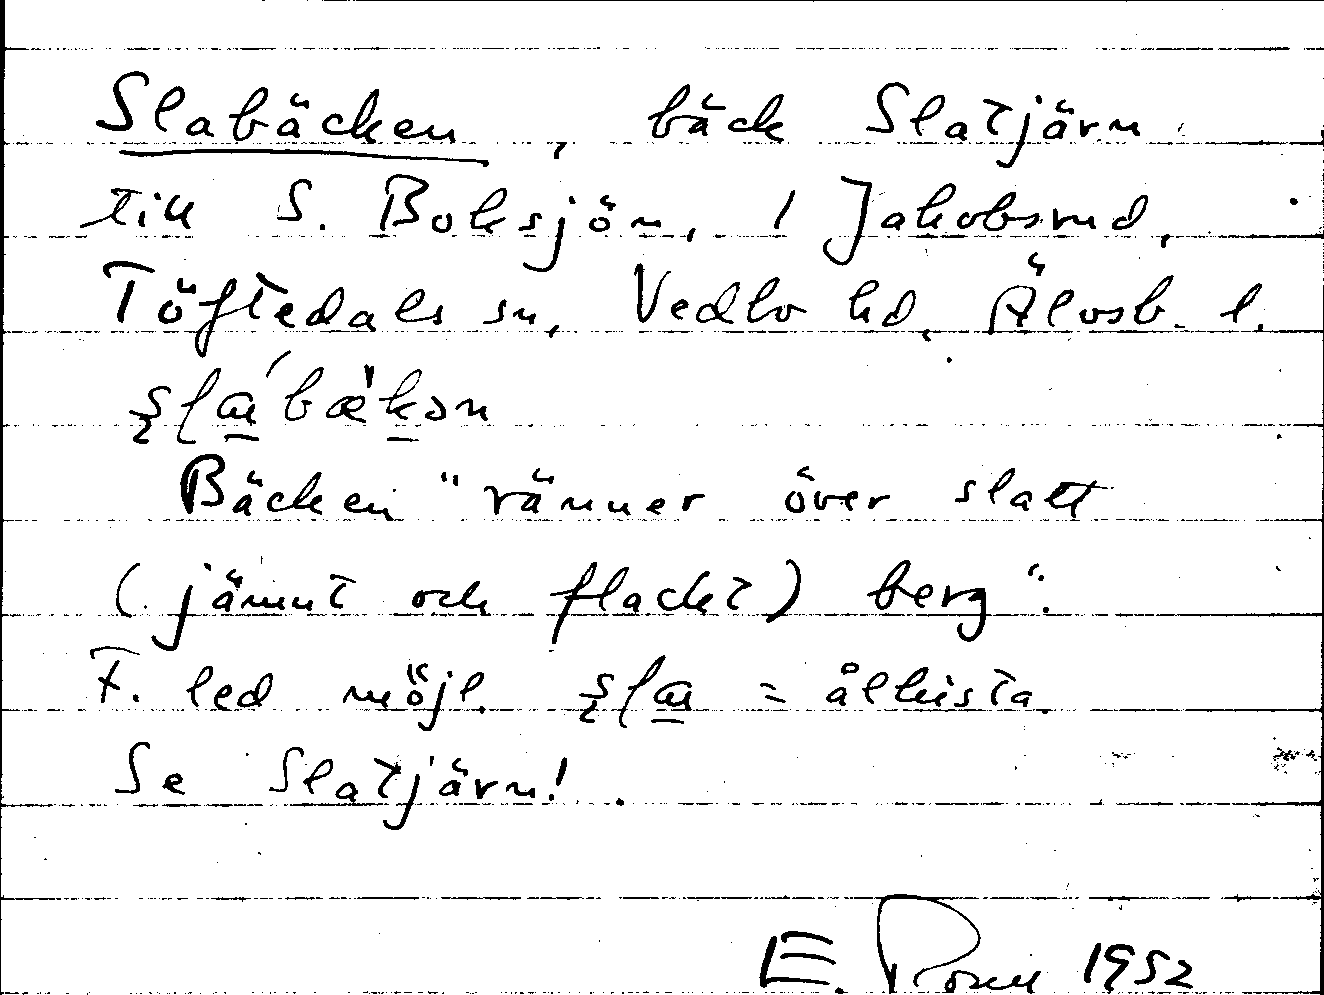 Slabäcken, bäck Slatjärn
till S. Boksjön, 1 Jakobsrud,
Töftedals sn, Vedbo hd, Älvsb. l.
Bäcken "ränner över slatt
(jämnt och flackt) berg".
F. led möjl. = ålkista.
Se Slatjärn!
E. 1952